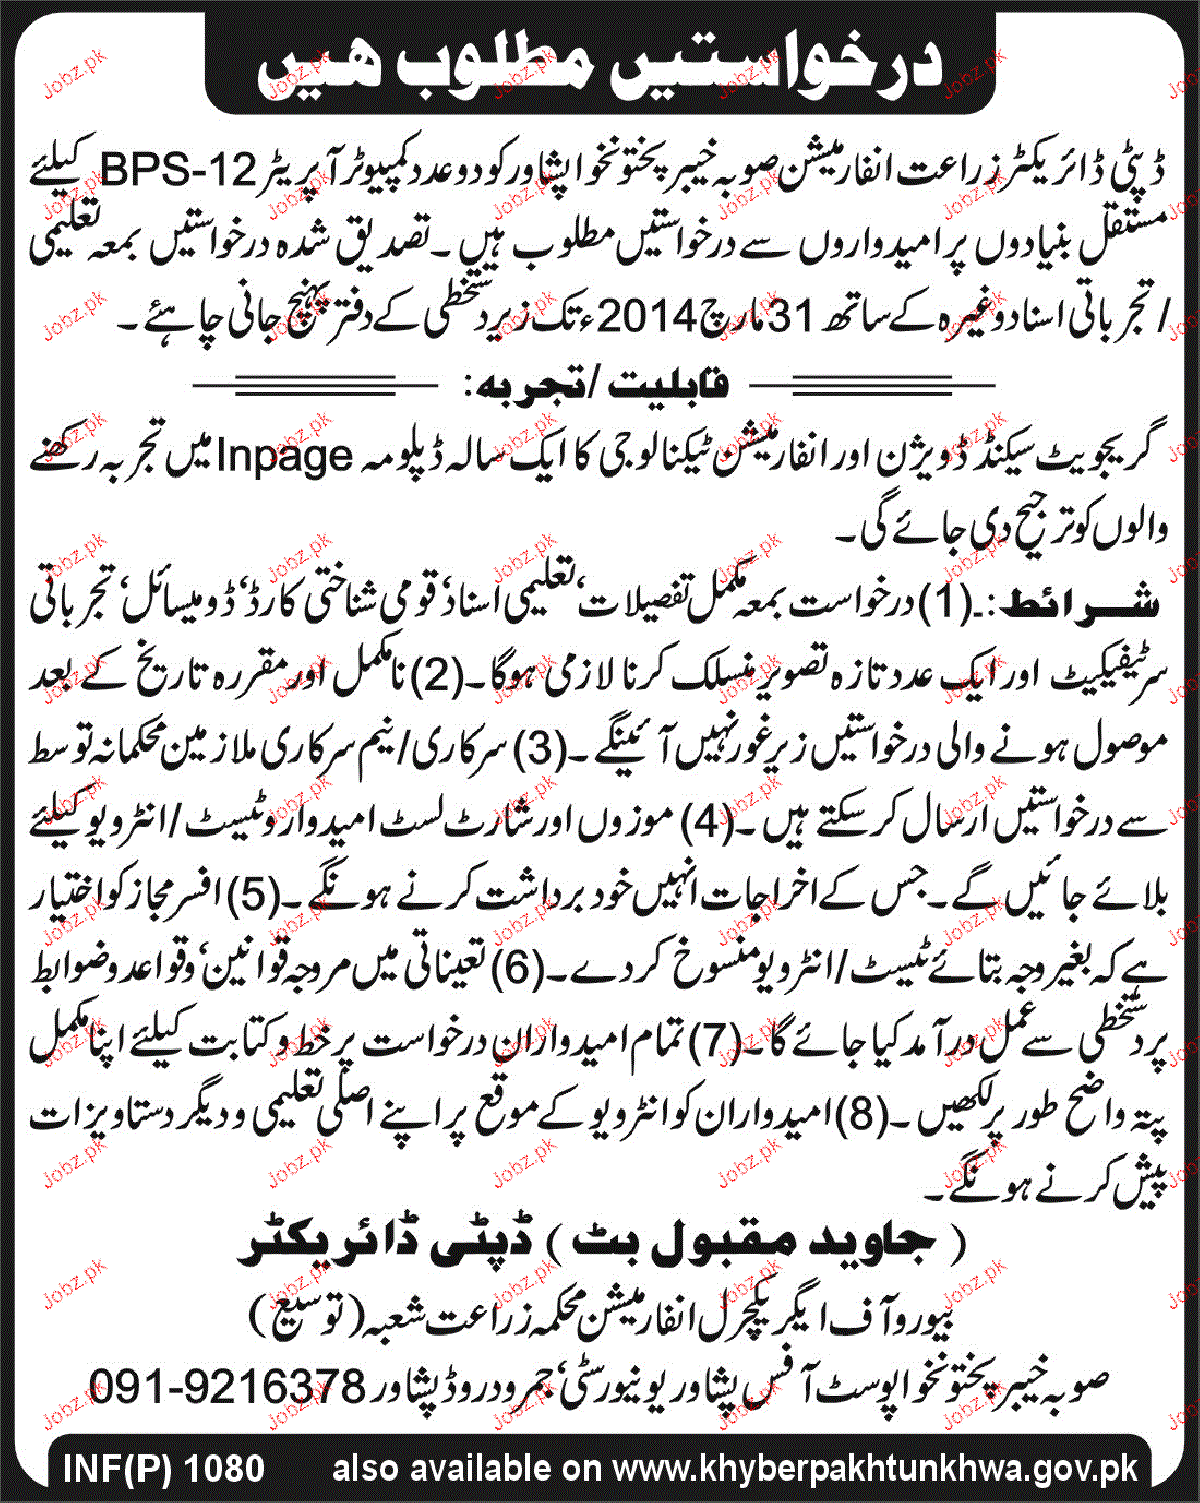 درخواستیں مطلوب ہیں
ڈپٹی ڈائریکٹر زراعت انفارمیشن صوبہ خیبر پختونخوا پشاور کو دو عدد کمپیوٹر آپریٹر BPS-12 کیلئے
مستقل بنیادوں پر امیدواروں سے درخواستیں مطلوب ہیں۔ تصدیق شدہ درخواستیں بمعہ تعلیمی
/ تجرباتی اسناد وغیرہ کے ساتھ 31 مارچ 2014ء تک زیر دستخطی کے دفتر پہنچ جانی چاہئے۔
قابلیت/تجربہ:
گریجویٹ سیکنڈ ڈویژن اور انفارمیشن ٹیکنالوجی کا ایک سالہ ڈپلومہ Inpage میں تجربہ رکھنے
والوں کو ترجیح دی جائے گی۔
شرائط:۔ (1) درخواست بمعہ مکمل تفصیلات، تعلیمی اسناد، قومی شناختی کارڈ، ڈومیسائل، تجرباتی
سرٹیفیکیٹ اور ایک عدد تازہ تصویر منسلک کرنا لازمی ہوگا۔ (2) نامکمل اور مقررہ تاریخ کے بعد
موصول ہونے والی درخواستیں زیر غور نہیں آئینگے۔ (3) سرکاری/ نیم سرکاری ملازمین محکمانہ توسط
سے درخواستیں ارسال کر سکتے ہیں۔ (4) موزوں اور شارٹ لسٹ امیدوار و ٹیسٹ/ انٹرویو کیلئے
بلائے جائیں گے۔ جس کے اخراجات انہیں خود برداشت کرنے ہونگے۔ (5) افسر مجاز کو اختیار
ہے کہ بغیر وجہ بتائے ٹیسٹ/ انٹرویو منسوخ کر دے۔ (6) تعیناتی میں مروجہ قوانین، و قواعد و ضوابط
پر دستخطی سے عمل درآمد کیا جائے گا۔ (7) تمام امیدواران درخواست پر خط و کتابت کیلئے اپنا مکمل
پتہ واضح طور پر لکھیں۔ (8) امیدواران کو انٹرویو کے موقع پر اپنے اصلی تعلیمی و دیگر دستاویزات
پیش کرنے ہونگے۔
(جاوید مقبول بٹ) ڈپٹی ڈائریکٹر
بیورو آف ایگریکلچرل انفارمیشن محکمہ زراعت شعبہ (توسیع)
صوبہ خیبر پختونخوا پوسٹ آفس پشاور یونیورسٹی، جمرود روڈ پشاور 091-9216378
INF(P) 1080 also available on www.khyberpakhtunkhwa.gov.pk